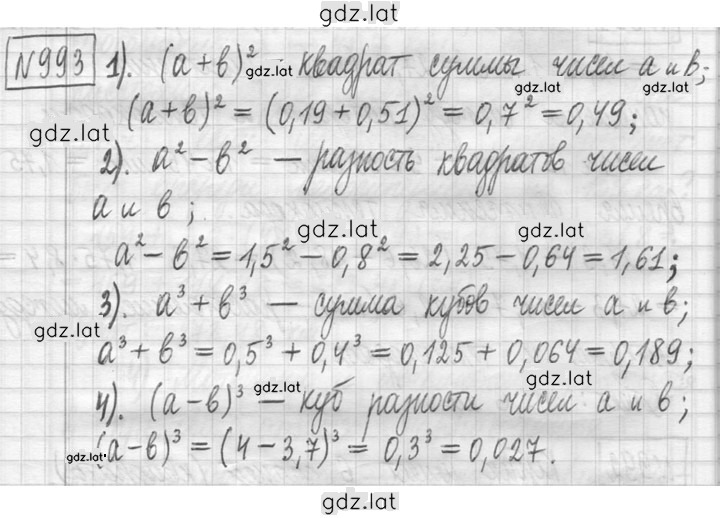 gdz.lat
№993 1). (а+в)² - квадрат суммы чисел а и в;
gdz.lat gdz.lat
(а+в)² = (0,19+0,51)² = 0,7² = 0,49;
gdz.lat
2). а² - в² — разность квадратов чисел
а и в;
gdz.lat gdz.lat
а² - в² = 1,5² - 0,8² = 2,25 - 0,64 = 1,61;
3). а³ + в³ — сумма кубов чисел а и в;
gdz.lat
а³ + в³ = 0,5³ + 0,4³ = 0,125 + 0,064 = 0,189;
gdz.lat gdz.lat
4). (а-в)³ — куб разности чисел а и в;
(а-в)³ = (4-3,7)³ = 0,3³ = 0,027.
gdz.lat
gdz.lat